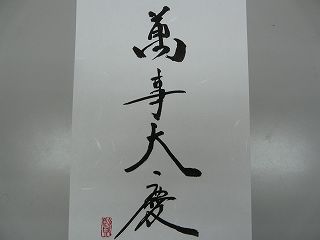 萬事大慶